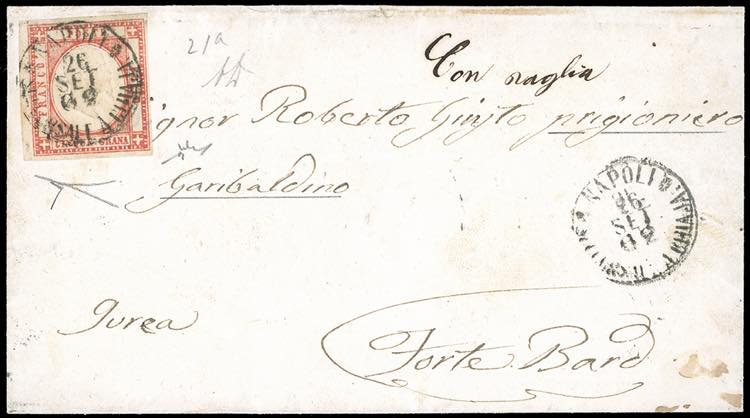 FRANCO
GRANA
NAPOLI
26
SET
62
21a
Con vaglia
Signor Roberto prigioniero
Garibaldino
NAPOLI
26
SET
62
Ivrea
Forte Bard